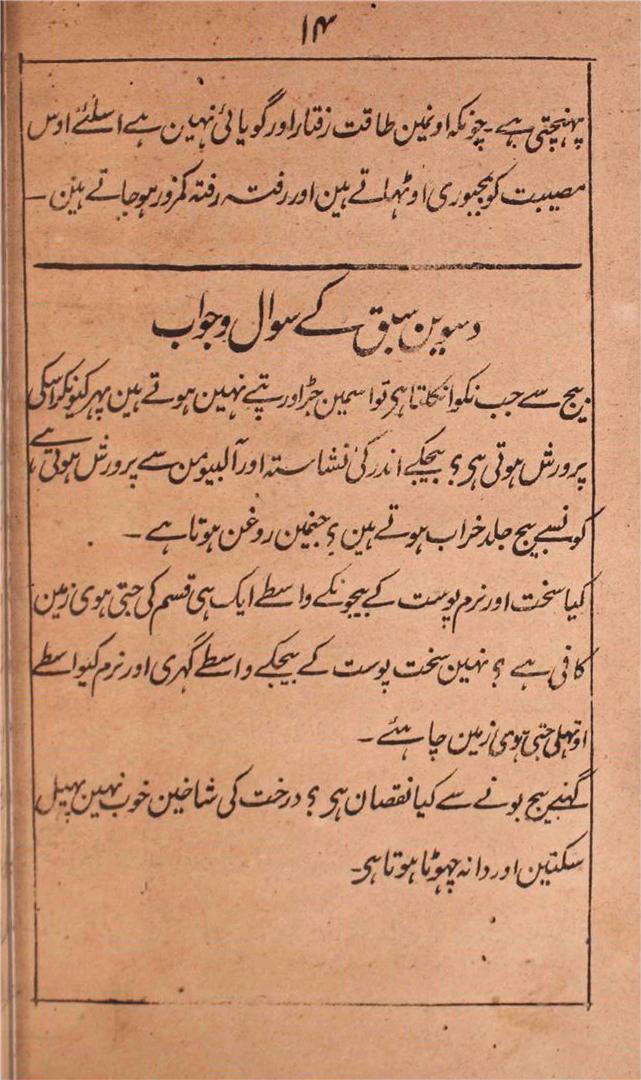 ۱۴
پہنچتی ہے۔ چونکہ اونمین طاقت رفتار اور گویائی نہین ہے اسلئے اوس
مصیبت کو بمجبوری اوٹہاتے ہین اور رفتہ رفتہ کمزور ہو جاتے ہین۔
دسوین سبق کے سوال وجواب
بیج سے جب نکوا نکلتا ہی تو اسمین جڑ اور پتے نہین ہوتے ہین پہر کیونکر اسکی
پرورش ہوتی ہی؟ بیجکے اندر کی نشاستہ اور آلبیومن سے پرورش ہوتی ہے
کونسے بیج جلد خراب ہوتے ہین؟ جنمین روغن ہوتا ہے۔
کیا سخت اور نرم پوست کے بیجونکے واسطے ایک ہی قسم کی جتی ہوی زمین
کافی ہے؟ نہین سخت پوست کے بیجکے واسطے گہری اور نرم کیواسطے
اوتہلی جتی ہوی زمین چاہئے۔
گہنے بیج بونے سے کیا نقصان ہی؟ درخت کی شاخین خوب نہین پہیل
سکتین اور دانہ چہوٹا ہوتا ہی۔